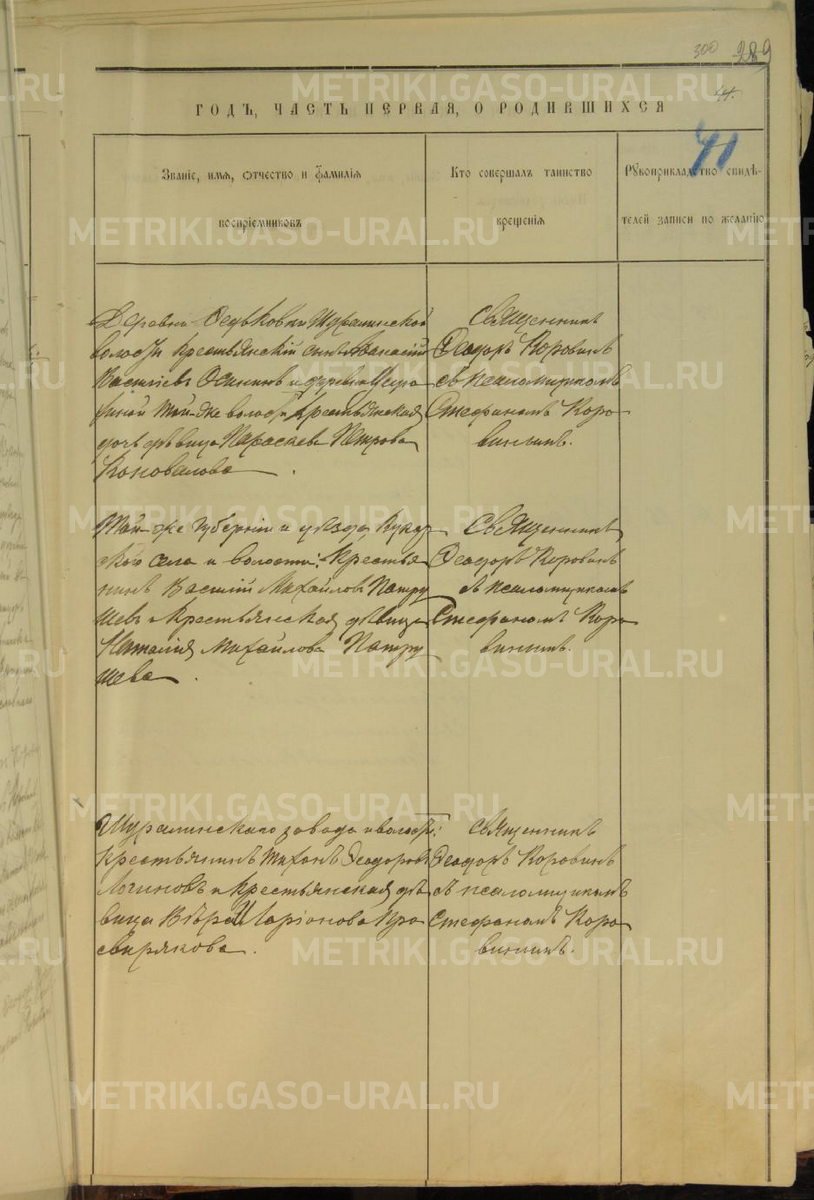 300 289
ГОДЪ, ЧАСТЬ ПЕРВАЯ, О РОДИВШИХСЯ
41
Званіе, имя, отчество и фамилія
воспріемниковъ
Кто совершалъ таинство
крещенія
Рукоприкладство свидѣ-
телей записи по желанію
Деревни Шуралинской
волости крестьянскій сынъ Аѳанасій
Осининъ и деревни
той-же волости крестьянская
дочь дѣвица Параскева Петрова
Коновалова.
Священникъ
Ѳеодоръ Коровинъ
съ псаломщикомъ
Стефаномъ Коро-
винымъ.
Той-же губерніи и уѣзда,
села и волости: крестья
нинъ Василій Михайловъ Патру
шевъ и крестьянская дѣвица
Наталія Михайлова Патру
шева.
Священникъ
Ѳеодоръ Коровинъ
съ псаломщикомъ
Стефаномъ Коро
винымъ.
Шуралинскаго завода и волости:
крестьянинъ Тихонъ Ѳеодоровъ
Логиновъ и крестьянская дѣ
вица Вѣра Иларіонова Про
свирякова.
Священникъ
Ѳеодоръ Коровинъ
съ псаломщикомъ
Стефаномъ Коро
винымъ.
METRIKI.GASO-URAL.RU